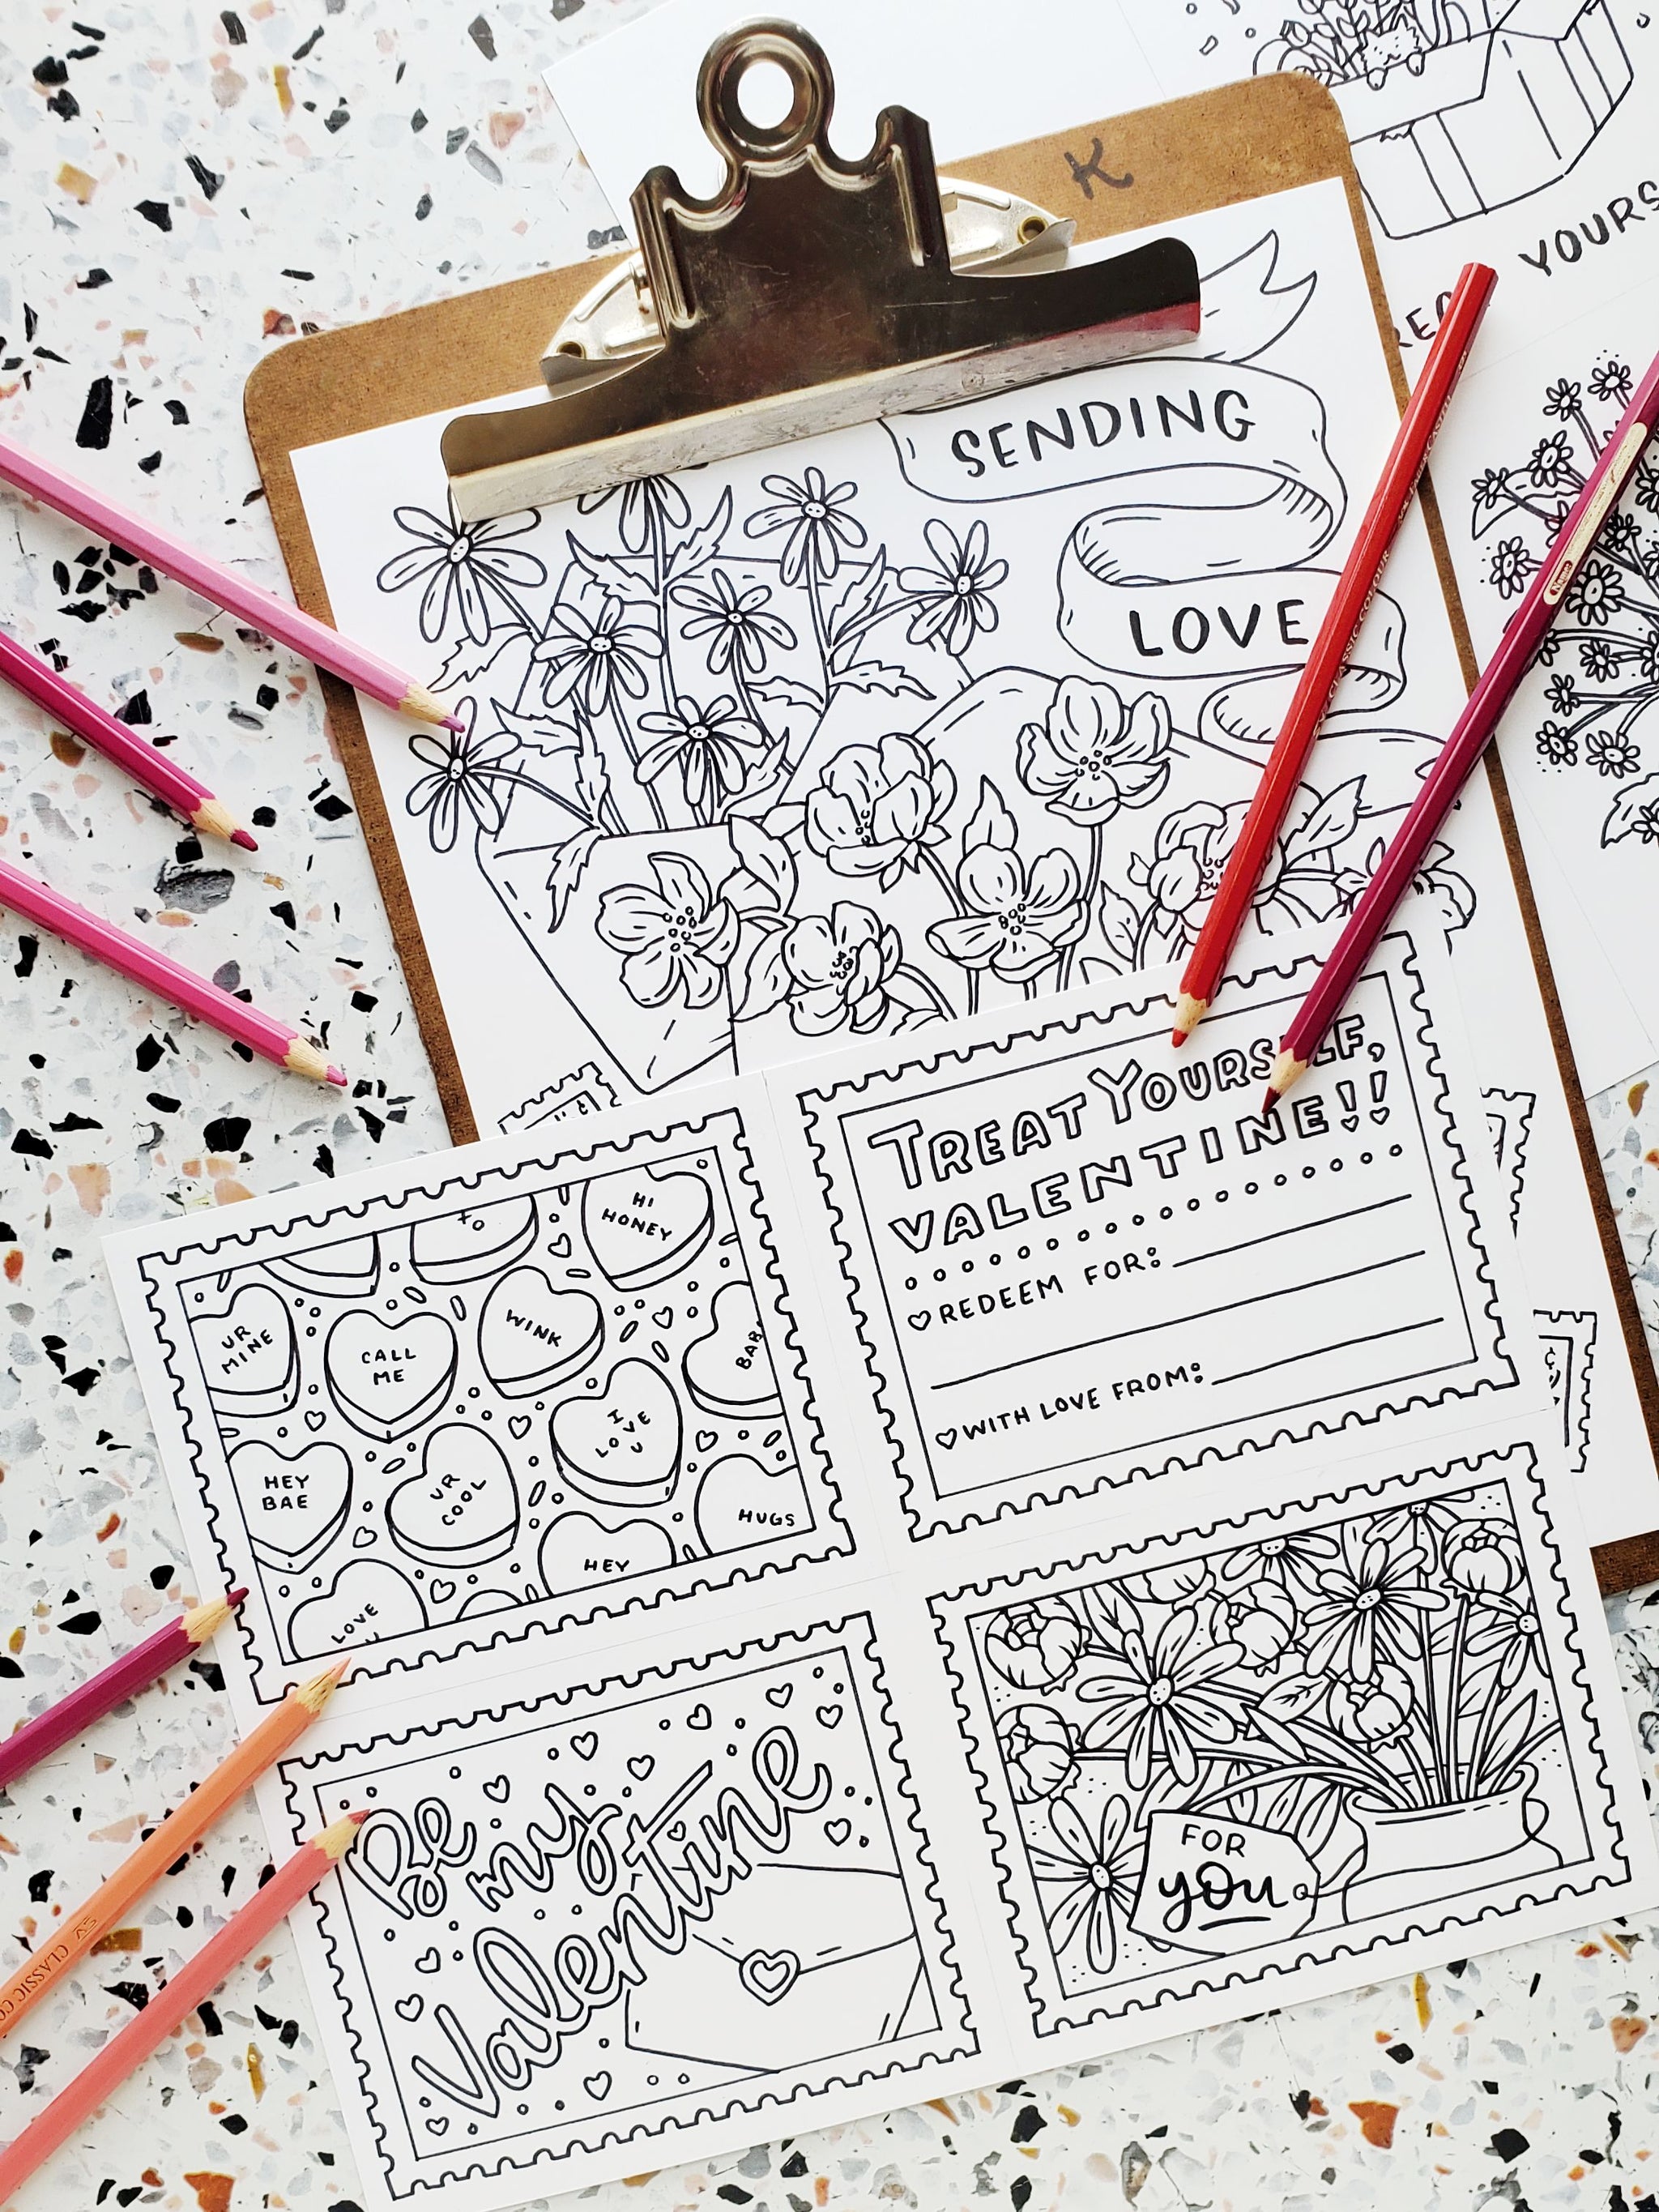 K
YOURS
SENDING
LOVE
TREAT YOURSELF,
VALENTINE!!
REDEEM FOR:
WITH LOVE FROM:
HI
HONEY
UR
MINE
CALL
ME
WINK
HEY
BAE
UR
COOL
I
LOVE
U
HUGS
HEY
LOVE
Be
my
Valentine
FOR
you
CLASSIC
CLASSIC COLOUR